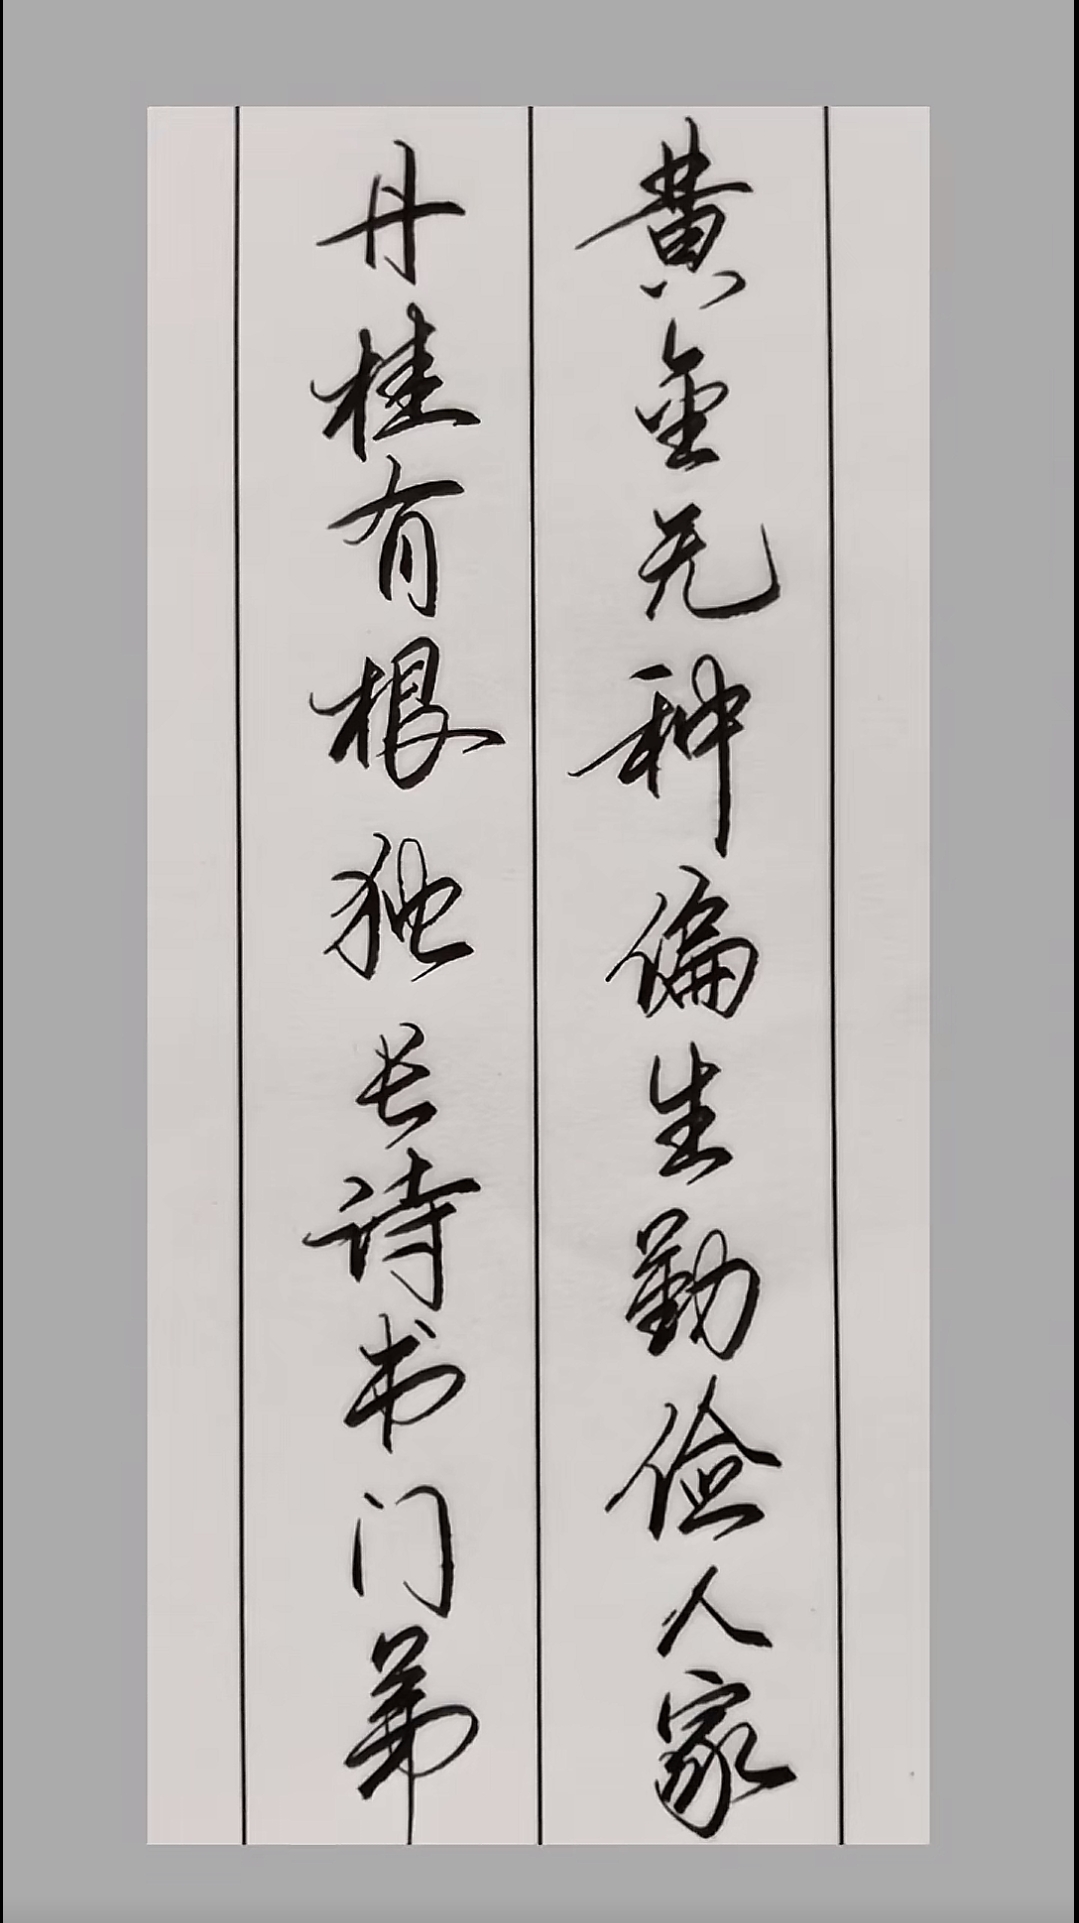 黄金无种偏生勤俭人家
丹桂有根独长诗书门第